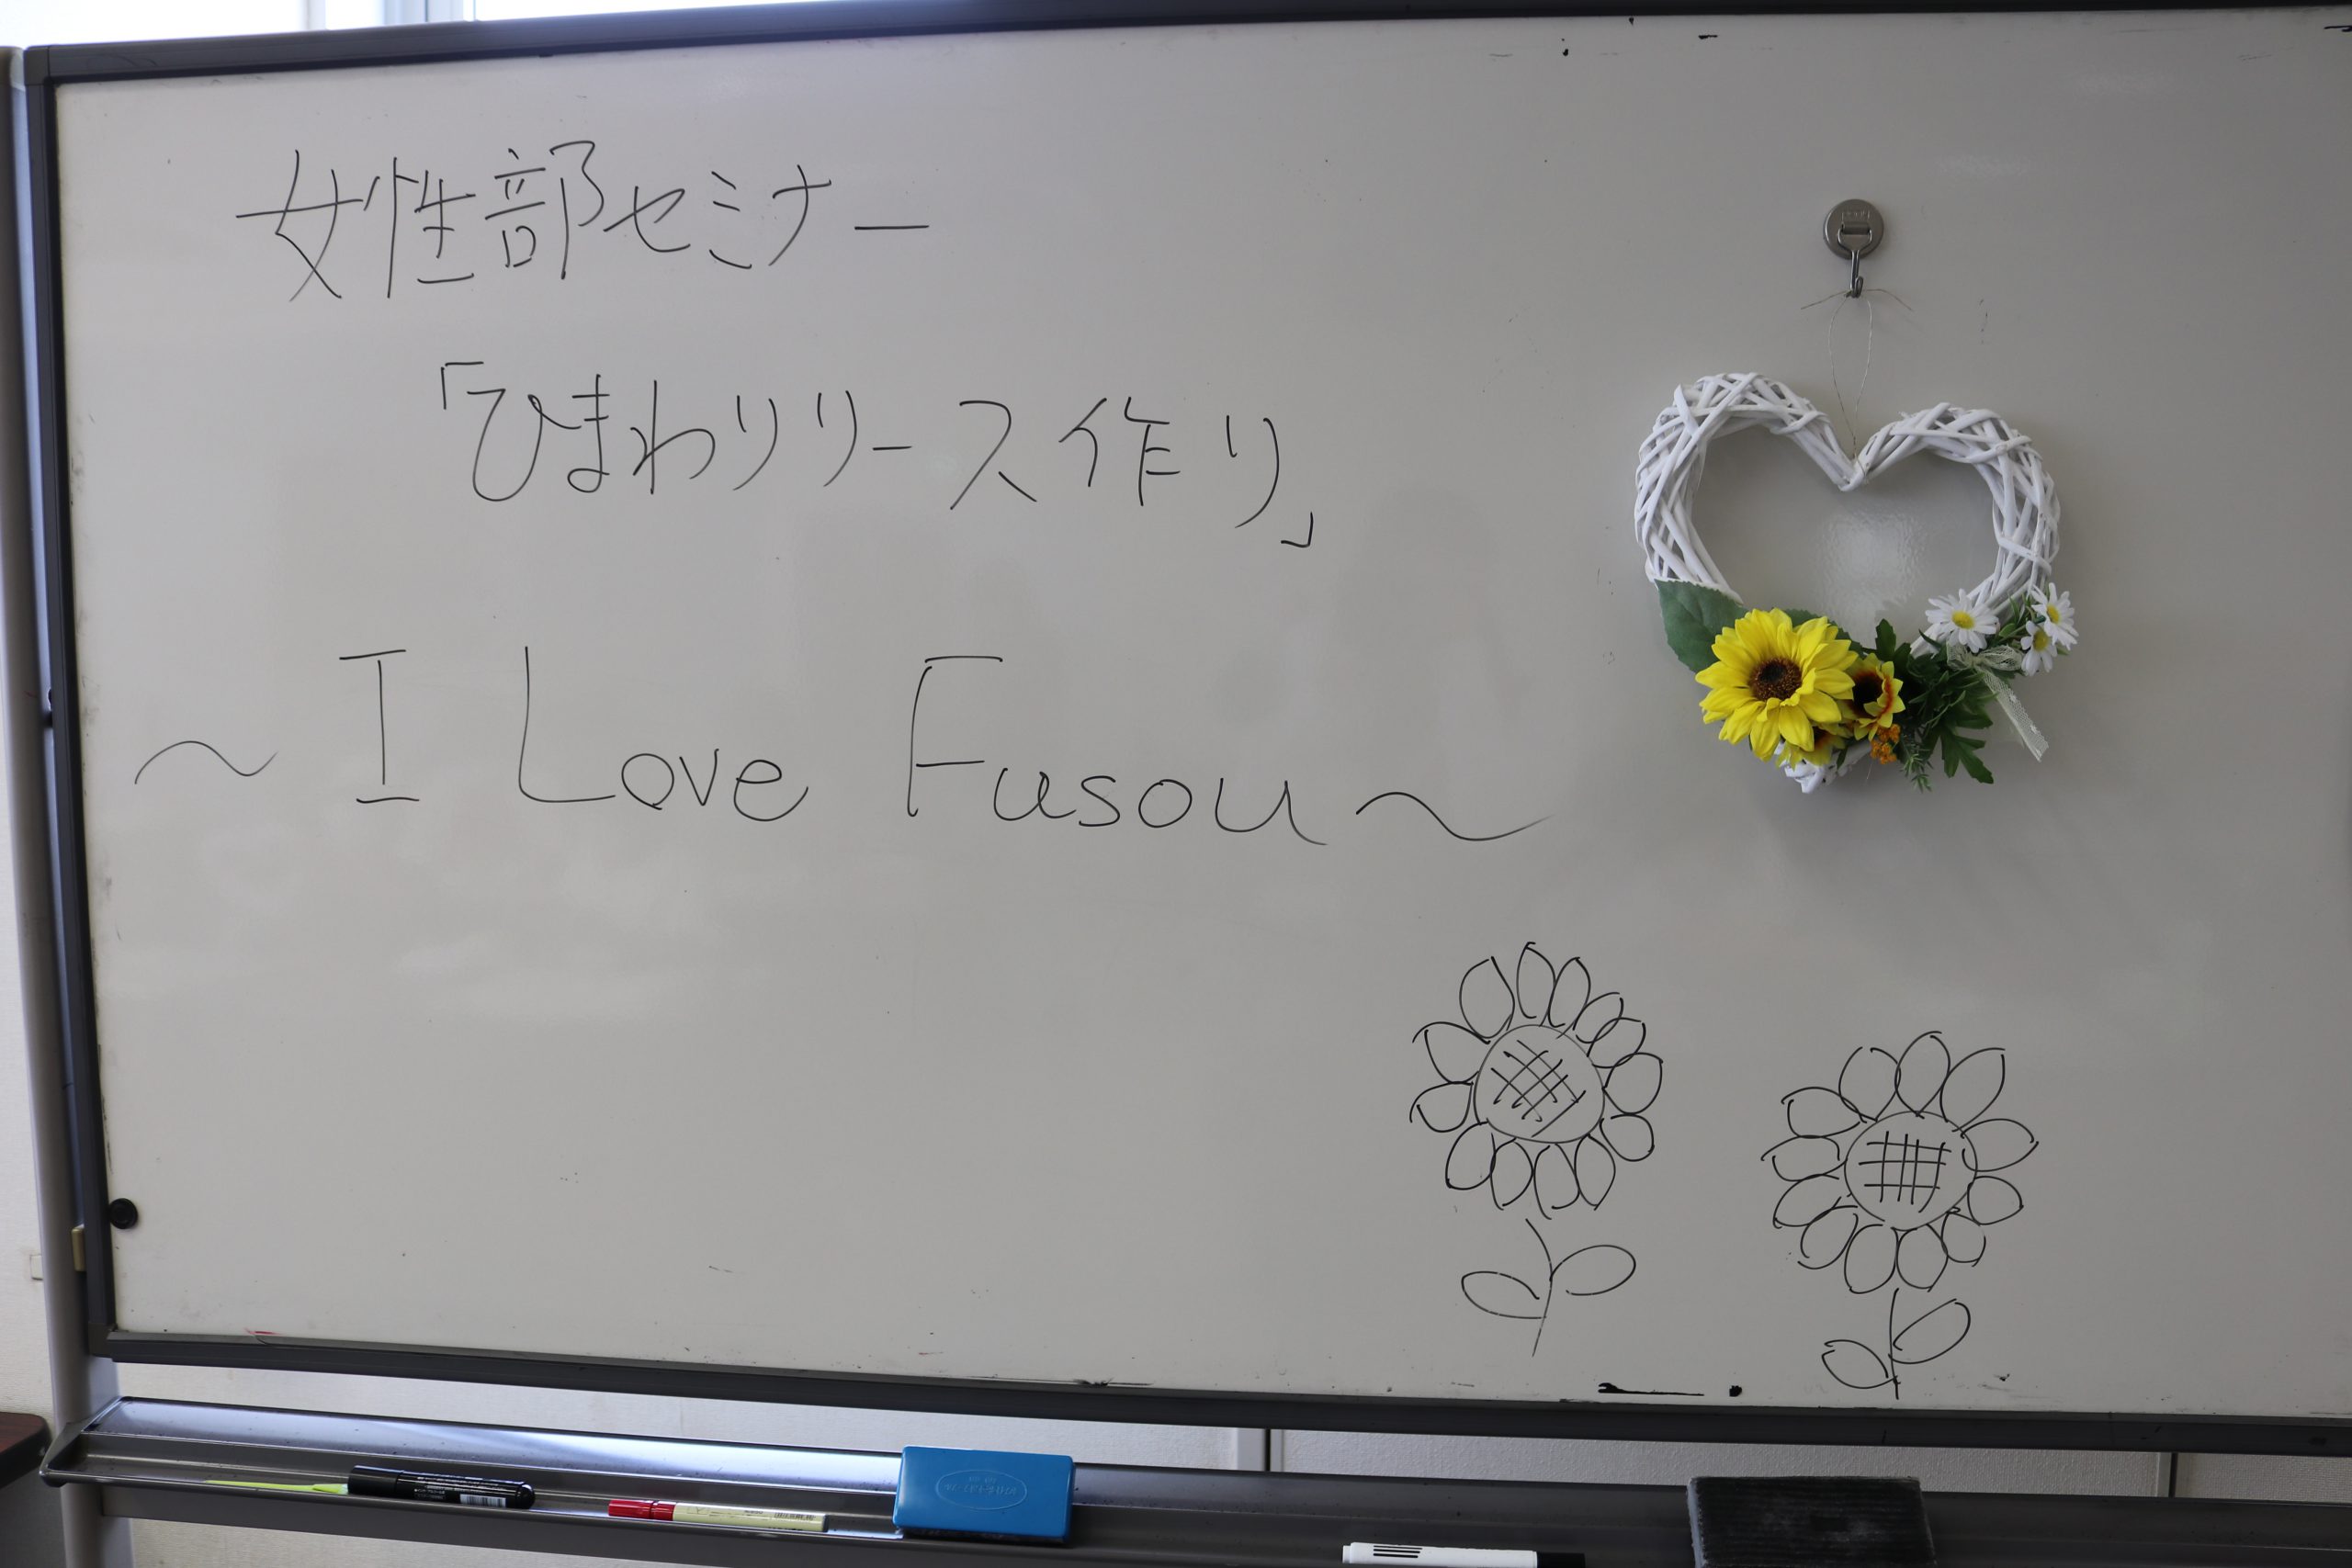 女性部セミナー
「ひまわりリース作り」
～I Love Fusou～